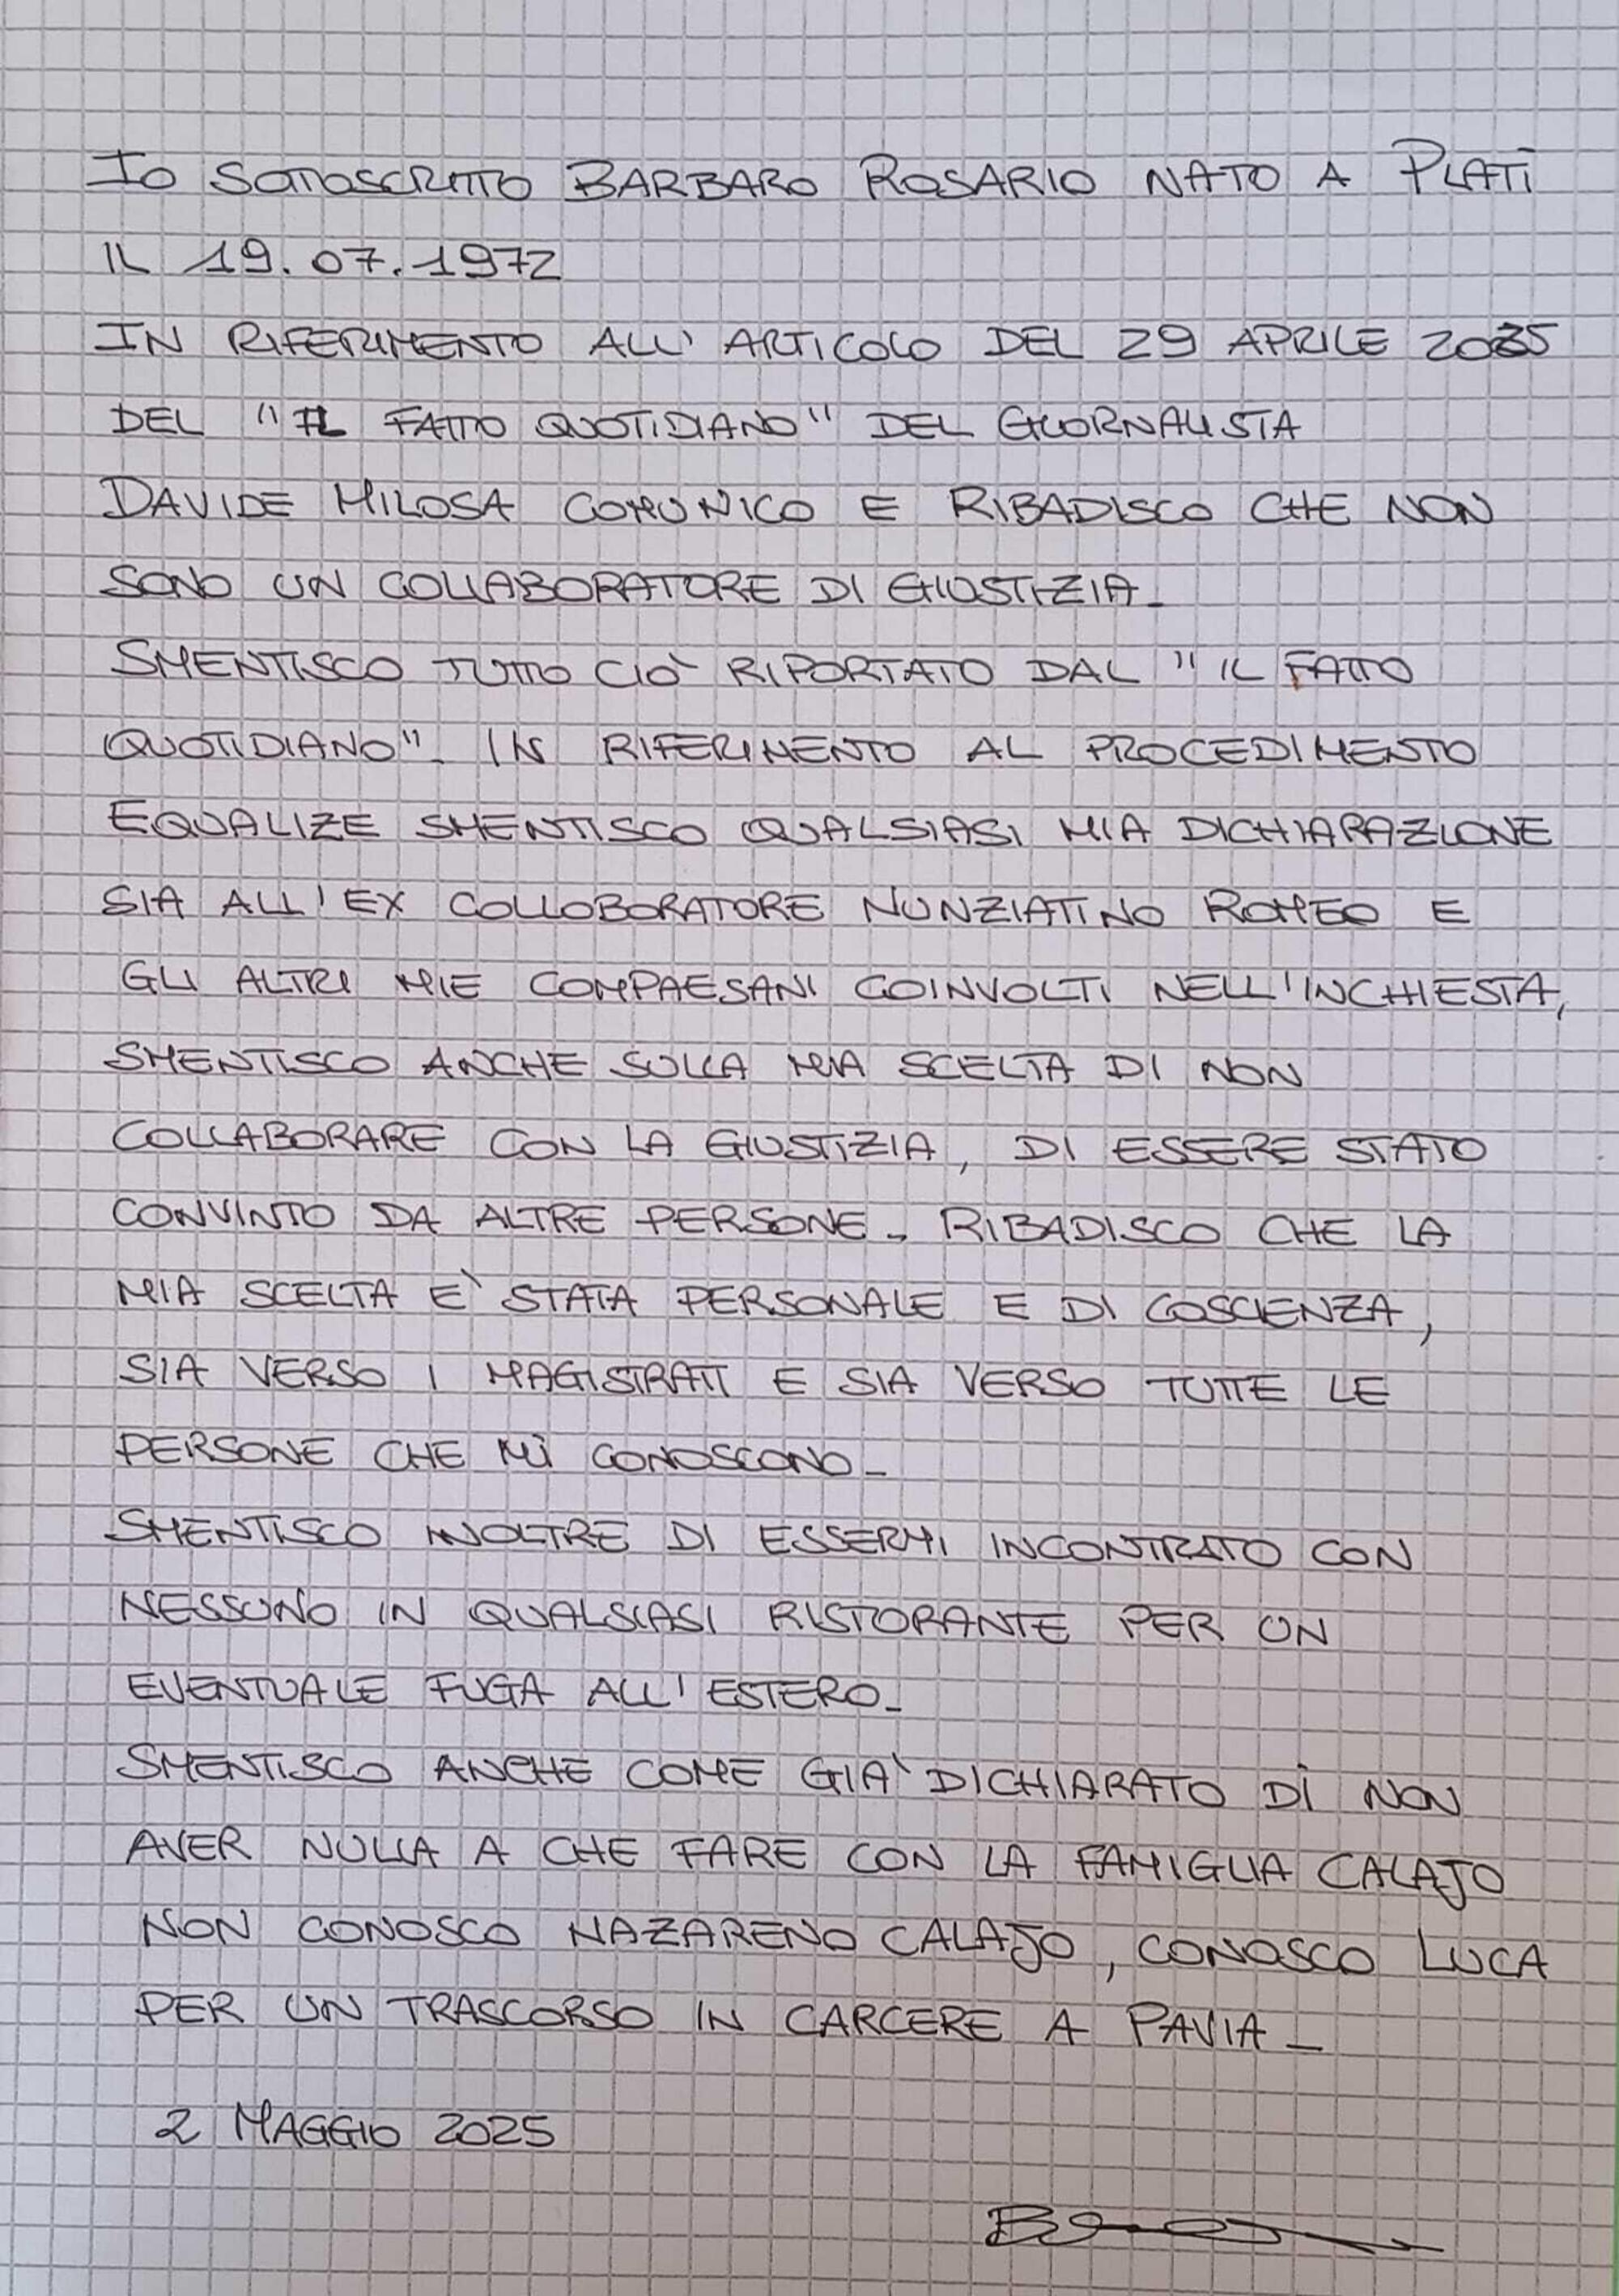 IO SOTTOSCRITTO BARBARO ROSARIO NATO A PLATÌ
IL 19.07.1972
IN RIFERIMENTO ALL'ARTICOLO DEL 29 APRILE 2025
DEL "IL FATTO QUOTIDIANO" DEL GIORNALISTA
DAVIDE MILOSA COMUNICO E RIBADISCO CHE NON
SONO UN COLLABORATORE DI GIUSTIZIA_
SMENTISCO TUTTO CIÒ RIPORTATO DAL "IL FATTO
QUOTIDIANO"_ IN RIFERIMENTO AL PROCEDIMENTO
EQUALIZE SMENTISCO QUALSIASI MIA DICHIARAZIONE
SIA ALL'EX COLLOBORATORE NUNZIATINO ROMEO E
GLI ALTRI MIE COMPAESANI COINVOLTI NELL'INCHIESTA,
SMENTISCO ANCHE SULLA MIA SCELTA DI NON
COLLABORARE CON LA GIUSTIZIA, DI ESSERE STATO
CONVINTO DA ALTRE PERSONE_ RIBADISCO CHE LA
MIA SCELTA E' STATA PERSONALE E DI COSCIENZA,
SIA VERSO I MAGISTRATI E SIA VERSO TUTTE LE
PERSONE CHE MÌ CONOSCONO_
SMENTISCO INOLTRE DI ESSERMI INCONTRATO CON
NESSUNO IN QUALSIASI RISTORANTE PER UN
EVENTUALE FUGA ALL'ESTERO_
SMENTISCO ANCHE COME GIA' DICHIARATO DÌ NON
AVER NULLA A CHE FARE CON LA FAMIGLIA CALAJO
NON CONOSCO NAZARENO CALAJO, CONOSCO LUCA
PER UN TRASCORSO IN CARCERE A PAVIA_
2 MAGGIO 2025